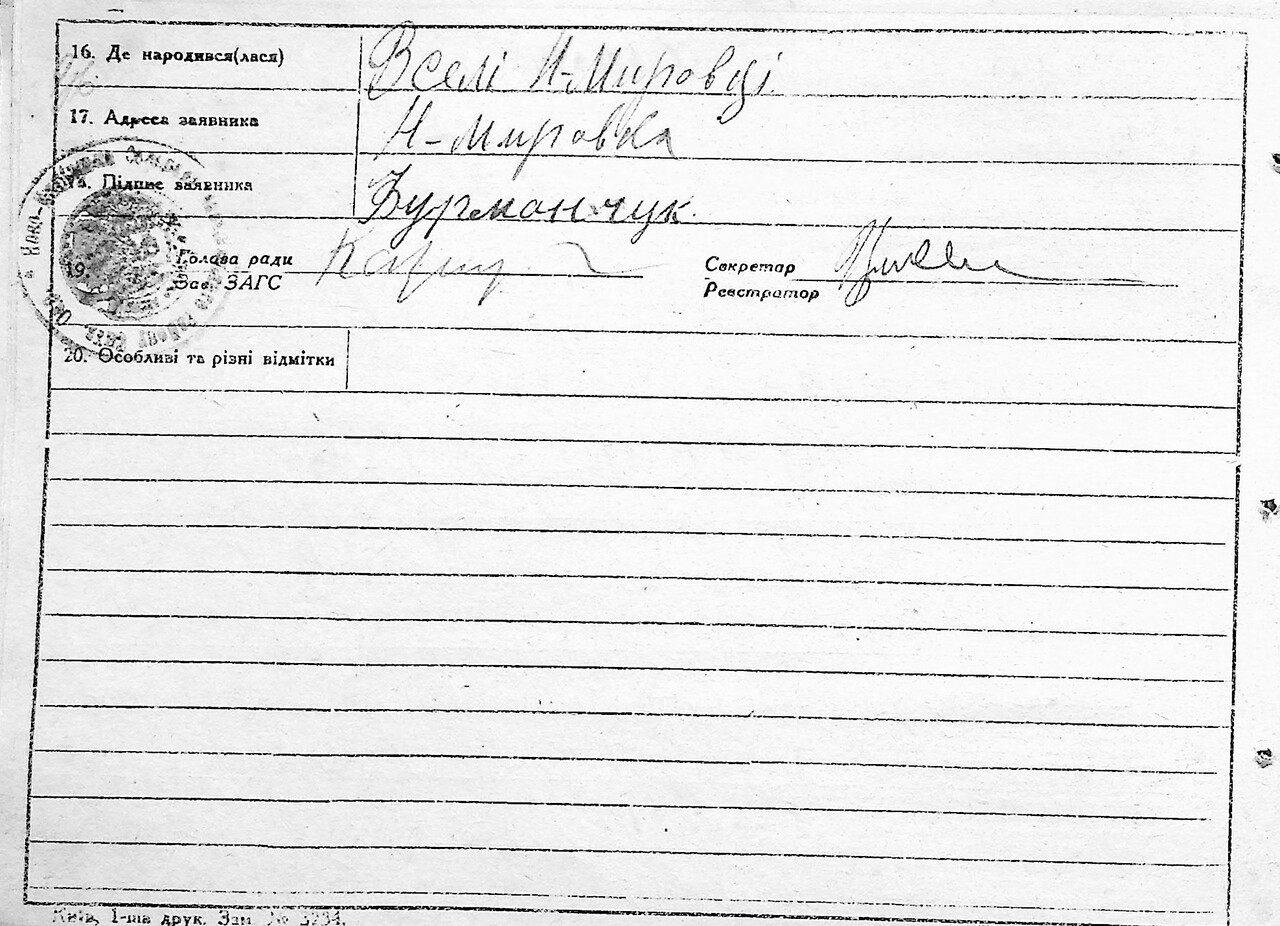 16. Де народився(лася) Вселі Н-Мировці
17. Адреса заявника Н-Мировка
18. Підпис заявника Бурманчук
19. Голова ради
Зав. ЗАГС
Секретар
Реєстратор
20. Особливі та різні відмітки
Київ, 1-ша друк. Зам. № 3234.